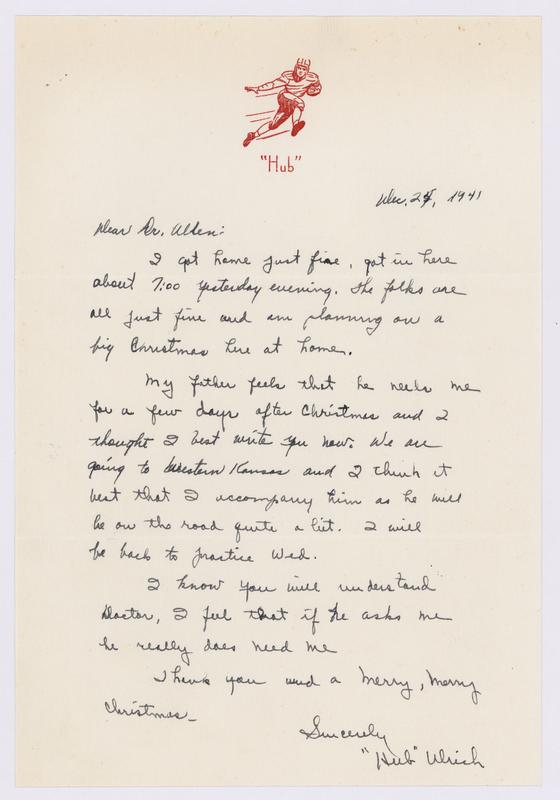 "Hub"
Dec. 24, 1941
Dear Dr. Allen:
I got home just fine, got in here
about 7:00 yesterday evening. The folks are
all just fine and am planning on a
big Christmas here at home.
My father feels that he needs me
for a few days after Christmas and I
thought I best write you now. We are
going to Western Kansas and I think it
best that I accompany him as he will
be on the road quite a bit. I will
be back to practice Wed.
I know you will understand
Doctor, I feel that if he asks me
he really does need me
Thank you and a Merry, Merry
Christmas_
Sincerely
"Hub" Ulrich